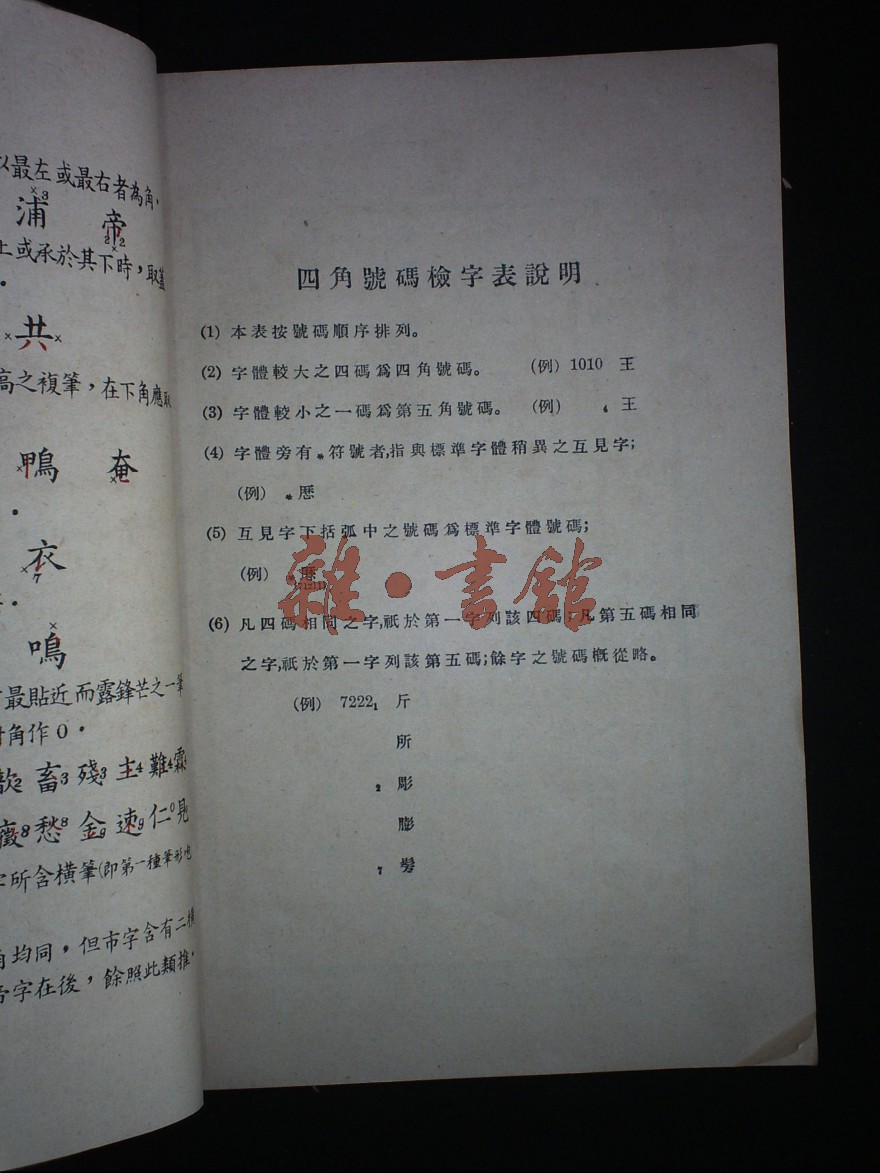 以最左或最右者為角。
×3
浦 帝
2 2
×
上或承於其下時，取
。
×共×
高之複筆，在下角應取
×鴨 ×奄
。
衣
×7
。
×
鳴
最貼近而露鋒芒之一筆
角作0。
歆2 畜3 殘3 主4 難4 霖4
8 愁8 金9 速9 仁0 見
字所含橫筆(即第一種筆形也
角均同。但市字含有二橫
帝字在後，餘照此類推。
四角號碼檢字表說明
(1) 本表按號碼順序排列。
(2) 字體較大之四碼為四角號碼。 (例) 1010 王
(3) 字體較小之一碼為第五角號碼。 (例) 4 王
(4) 字體旁有*符號者,指與標準字體稍異之互見字;
(例) *厯
(5) 互見字下括弧中之號碼為標準字體號碼;
(例) *厯
雜·書館
(6) 凡四碼相同之字,祇於第一字列該四碼;凡第五碼相同
之字,祇於第一字列該第五碼;餘字之號碼概從略。
(例) 7222₁ 斤
所
₂ 彫
膨
₇ 髣